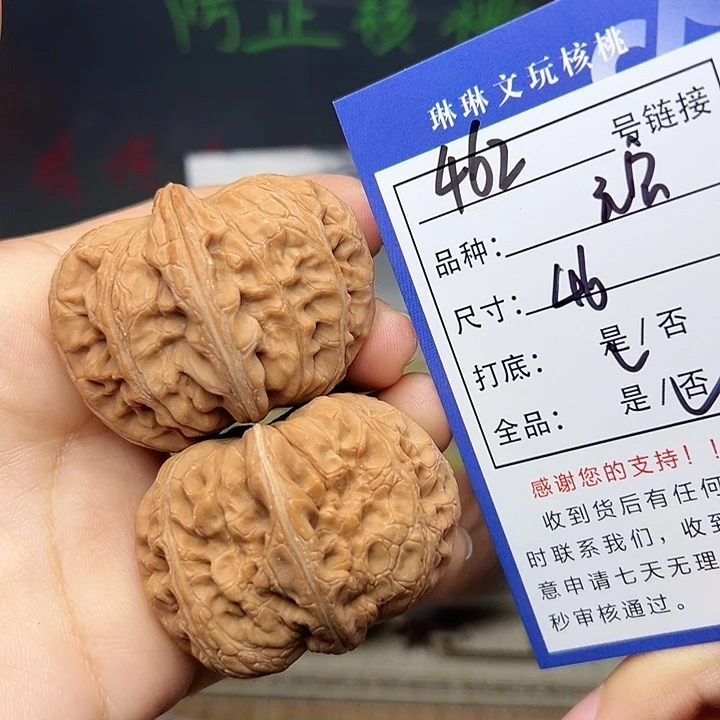 阿正核桃
琳琳文玩核桃
462 号链接
品种：
尺寸：46
打底：是/否
全品：是/否
感谢您的支持！！
收到货后有任何
时联系我们，收到
意申请七天无理
秒审核通过。